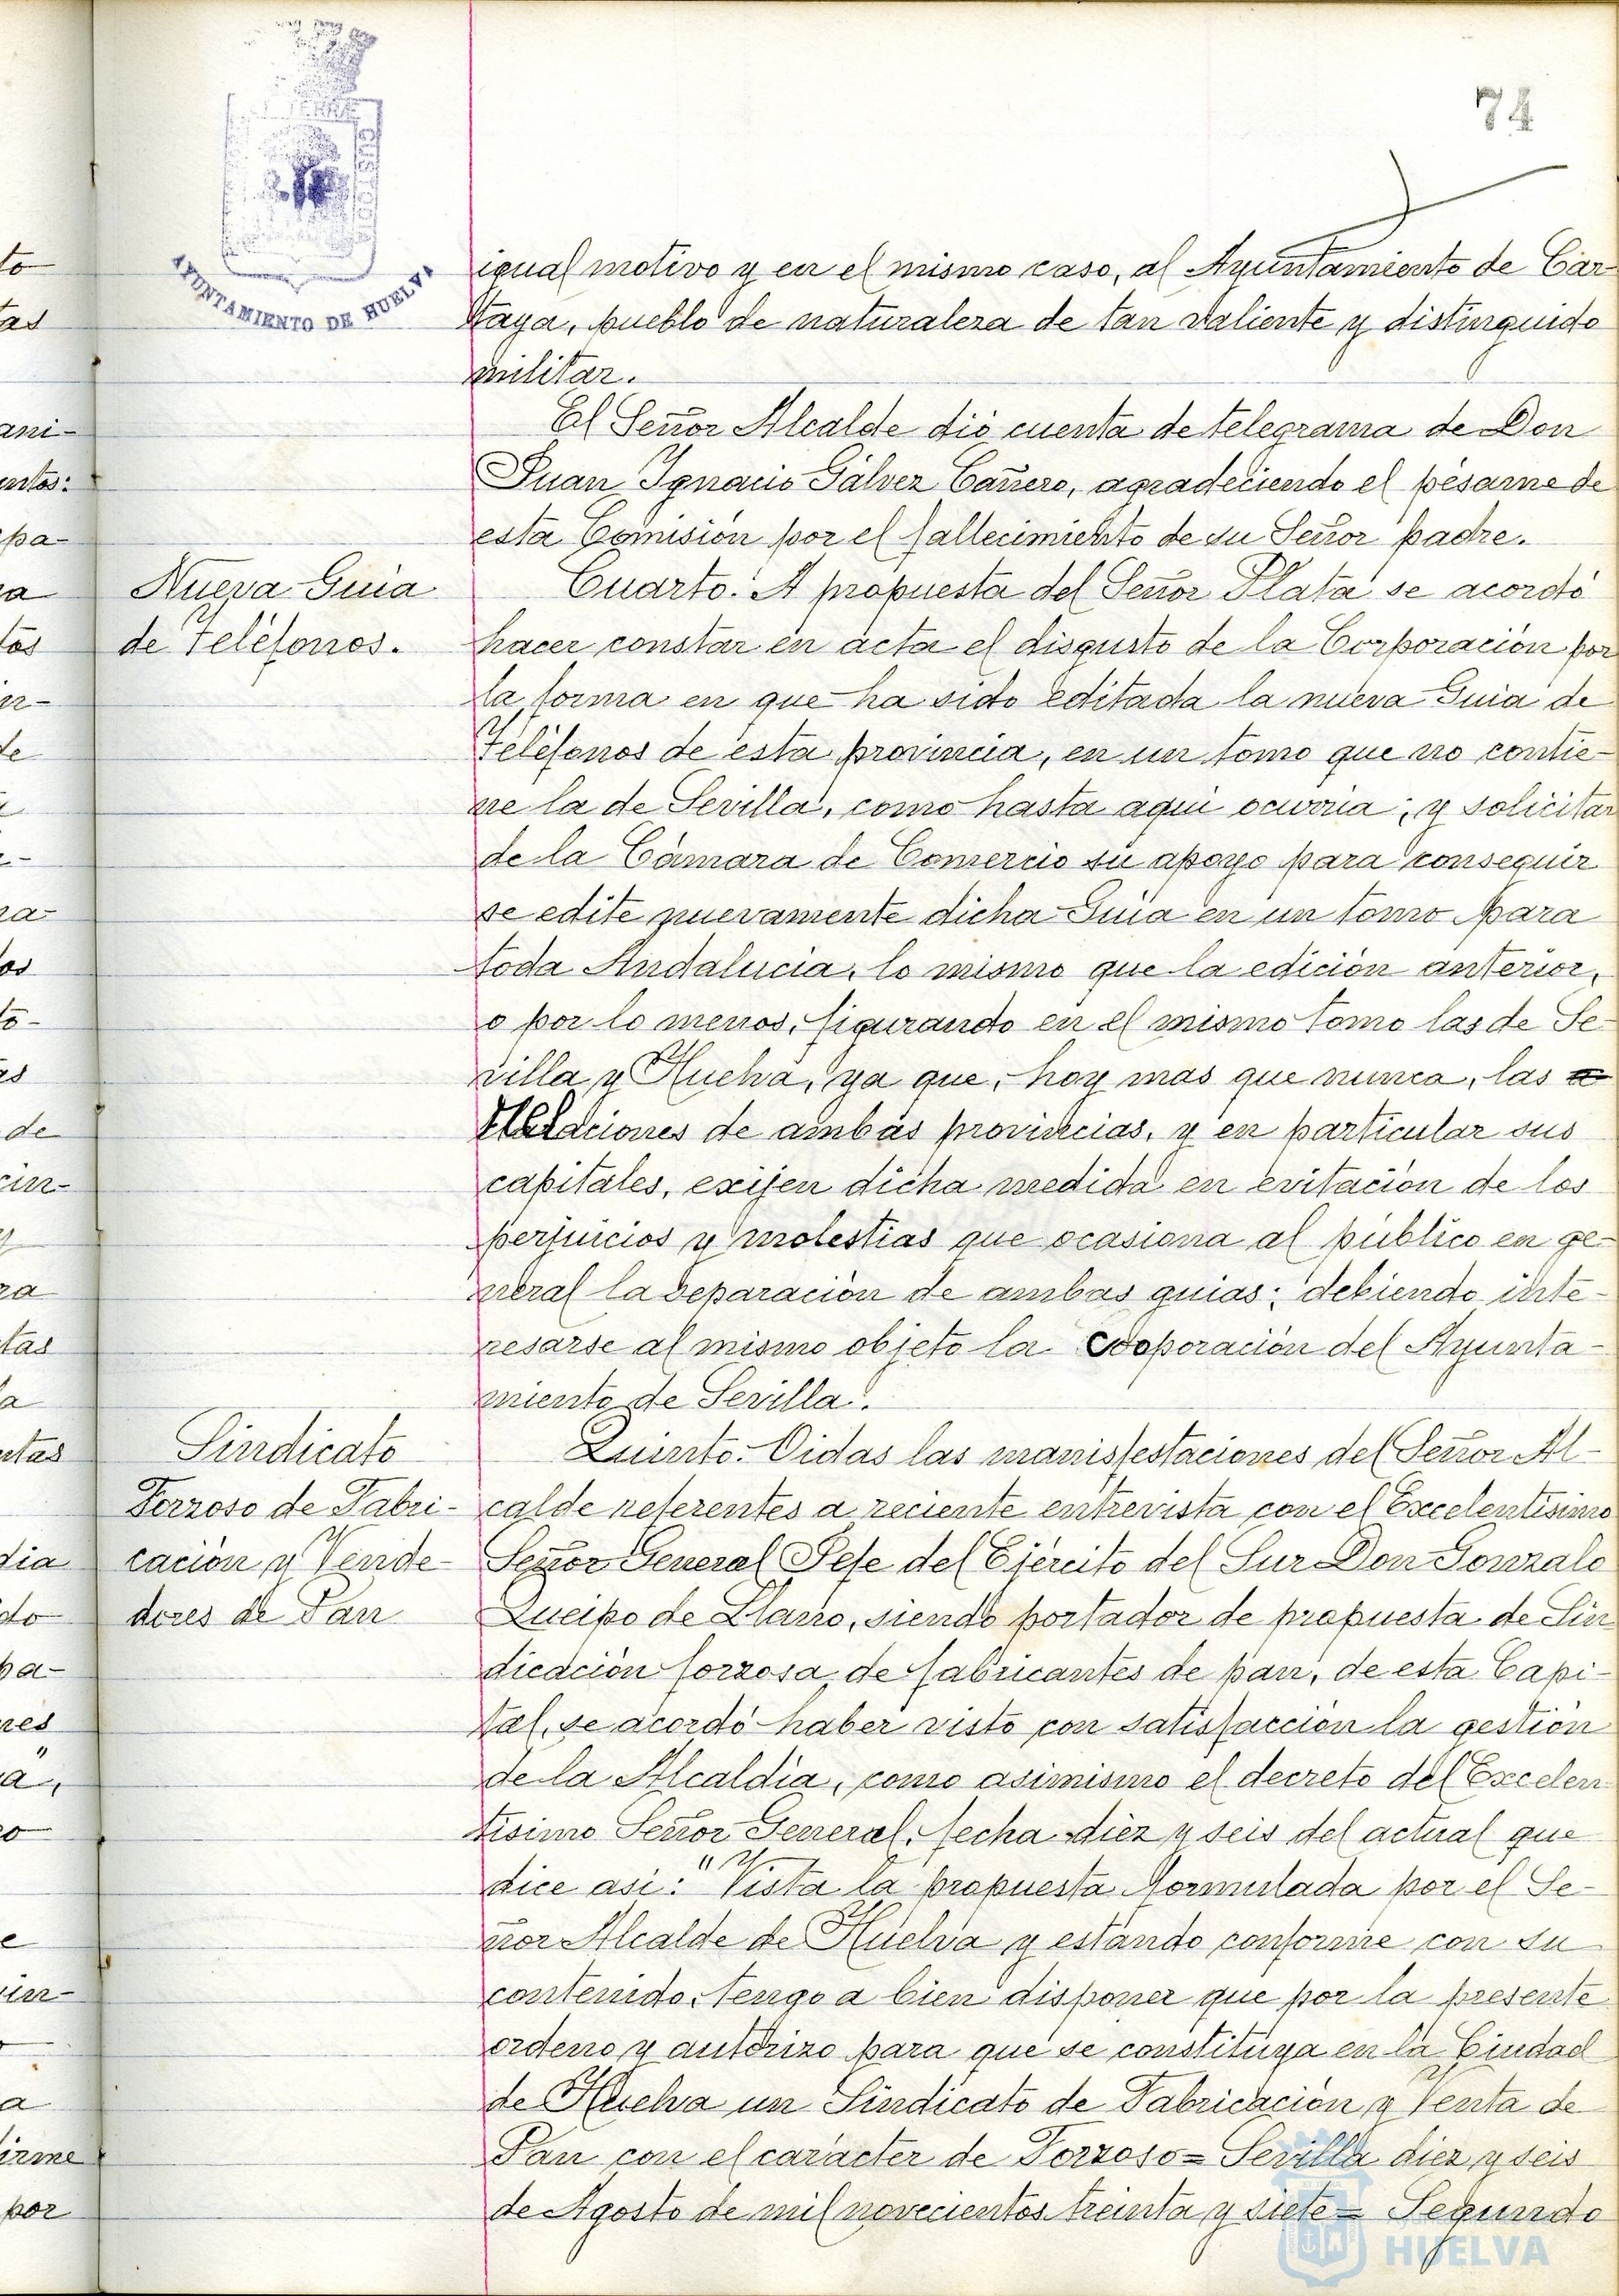 74
AYUNTAMIENTO DE HUELVA
igual motivo y en el mismo caso, al Ayuntamiento de Car-
taya, pueblo de naturaleza de tan valiente y distinguido
militar.
El Señor Alcalde dió cuenta de telegrama de Don
Juan Ignacio Gálvez Cañero, agradeciendo el pésame de
esta Comisión por el fallecimiento de su Señor padre.
Nueva Guia
de Teléfonos.
Cuarto. A propuesta del Señor Plata se acordó
hacer constar en acta el disgusto de la Corporación por
la forma en que ha sido editada la nueva Guia de
Teléfonos de esta provincia, en un tomo que no contie-
ne la de Sevilla, como hasta aqui ocurria; y solicitar
de la Cámara de Comercio su apoyo para conseguir
se edite nuevamente dicha Guia en un tomo para
toda Andalucia, lo mismo que la edición anterior,
o por lo menos, figurando en el mismo tomo las de Se-
villa y Huelva, ya que, hoy mas que nunca, las
relaciones de ambas provincias, y en particular sus
capitales, exijen dicha medida en evitación de los
perjuicios y molestias que ocasiona al público en ge-
neral la separación de ambas guias; debiendo inte-
resarse al mismo objeto la cooporación del Ayunta-
miento de Sevilla.
Sindicato
Forzoso de Fabri-
cación y Vende-
dores de Pan
Quinto. Oidas las manisfestaciones del Señor Al-
calde referentes a reciente entrevista con el Excelentísimo
Señor General Jefe del Ejército del Sur Don Gonzalo
Queipo de Llano, siendo portador de propuesta de Sin
dicación forzosa de fabricantes de pan, de esta Capi-
tal, se acordó haber visto con satisfacción la gestión
de la Alcaldía, como asimismo el decreto del Excelen
tísimo Señor General, fecha diez y seis del actual que
dice asi: "Vista la propuesta formulada por el Se-
ñor Alcalde de Huelva y estando conforme con su
contenido, tengo a bien disponer que por la presente
ordeno y autorizo para que se constituya en la Ciudad
de Huelva un Sindicato de Fabricación y Venta de
Pan con el carácter de Forzoso= Sevilla diez y seis
de Agosto de mil novecientos treinta y siete= Segundo
HUELVA